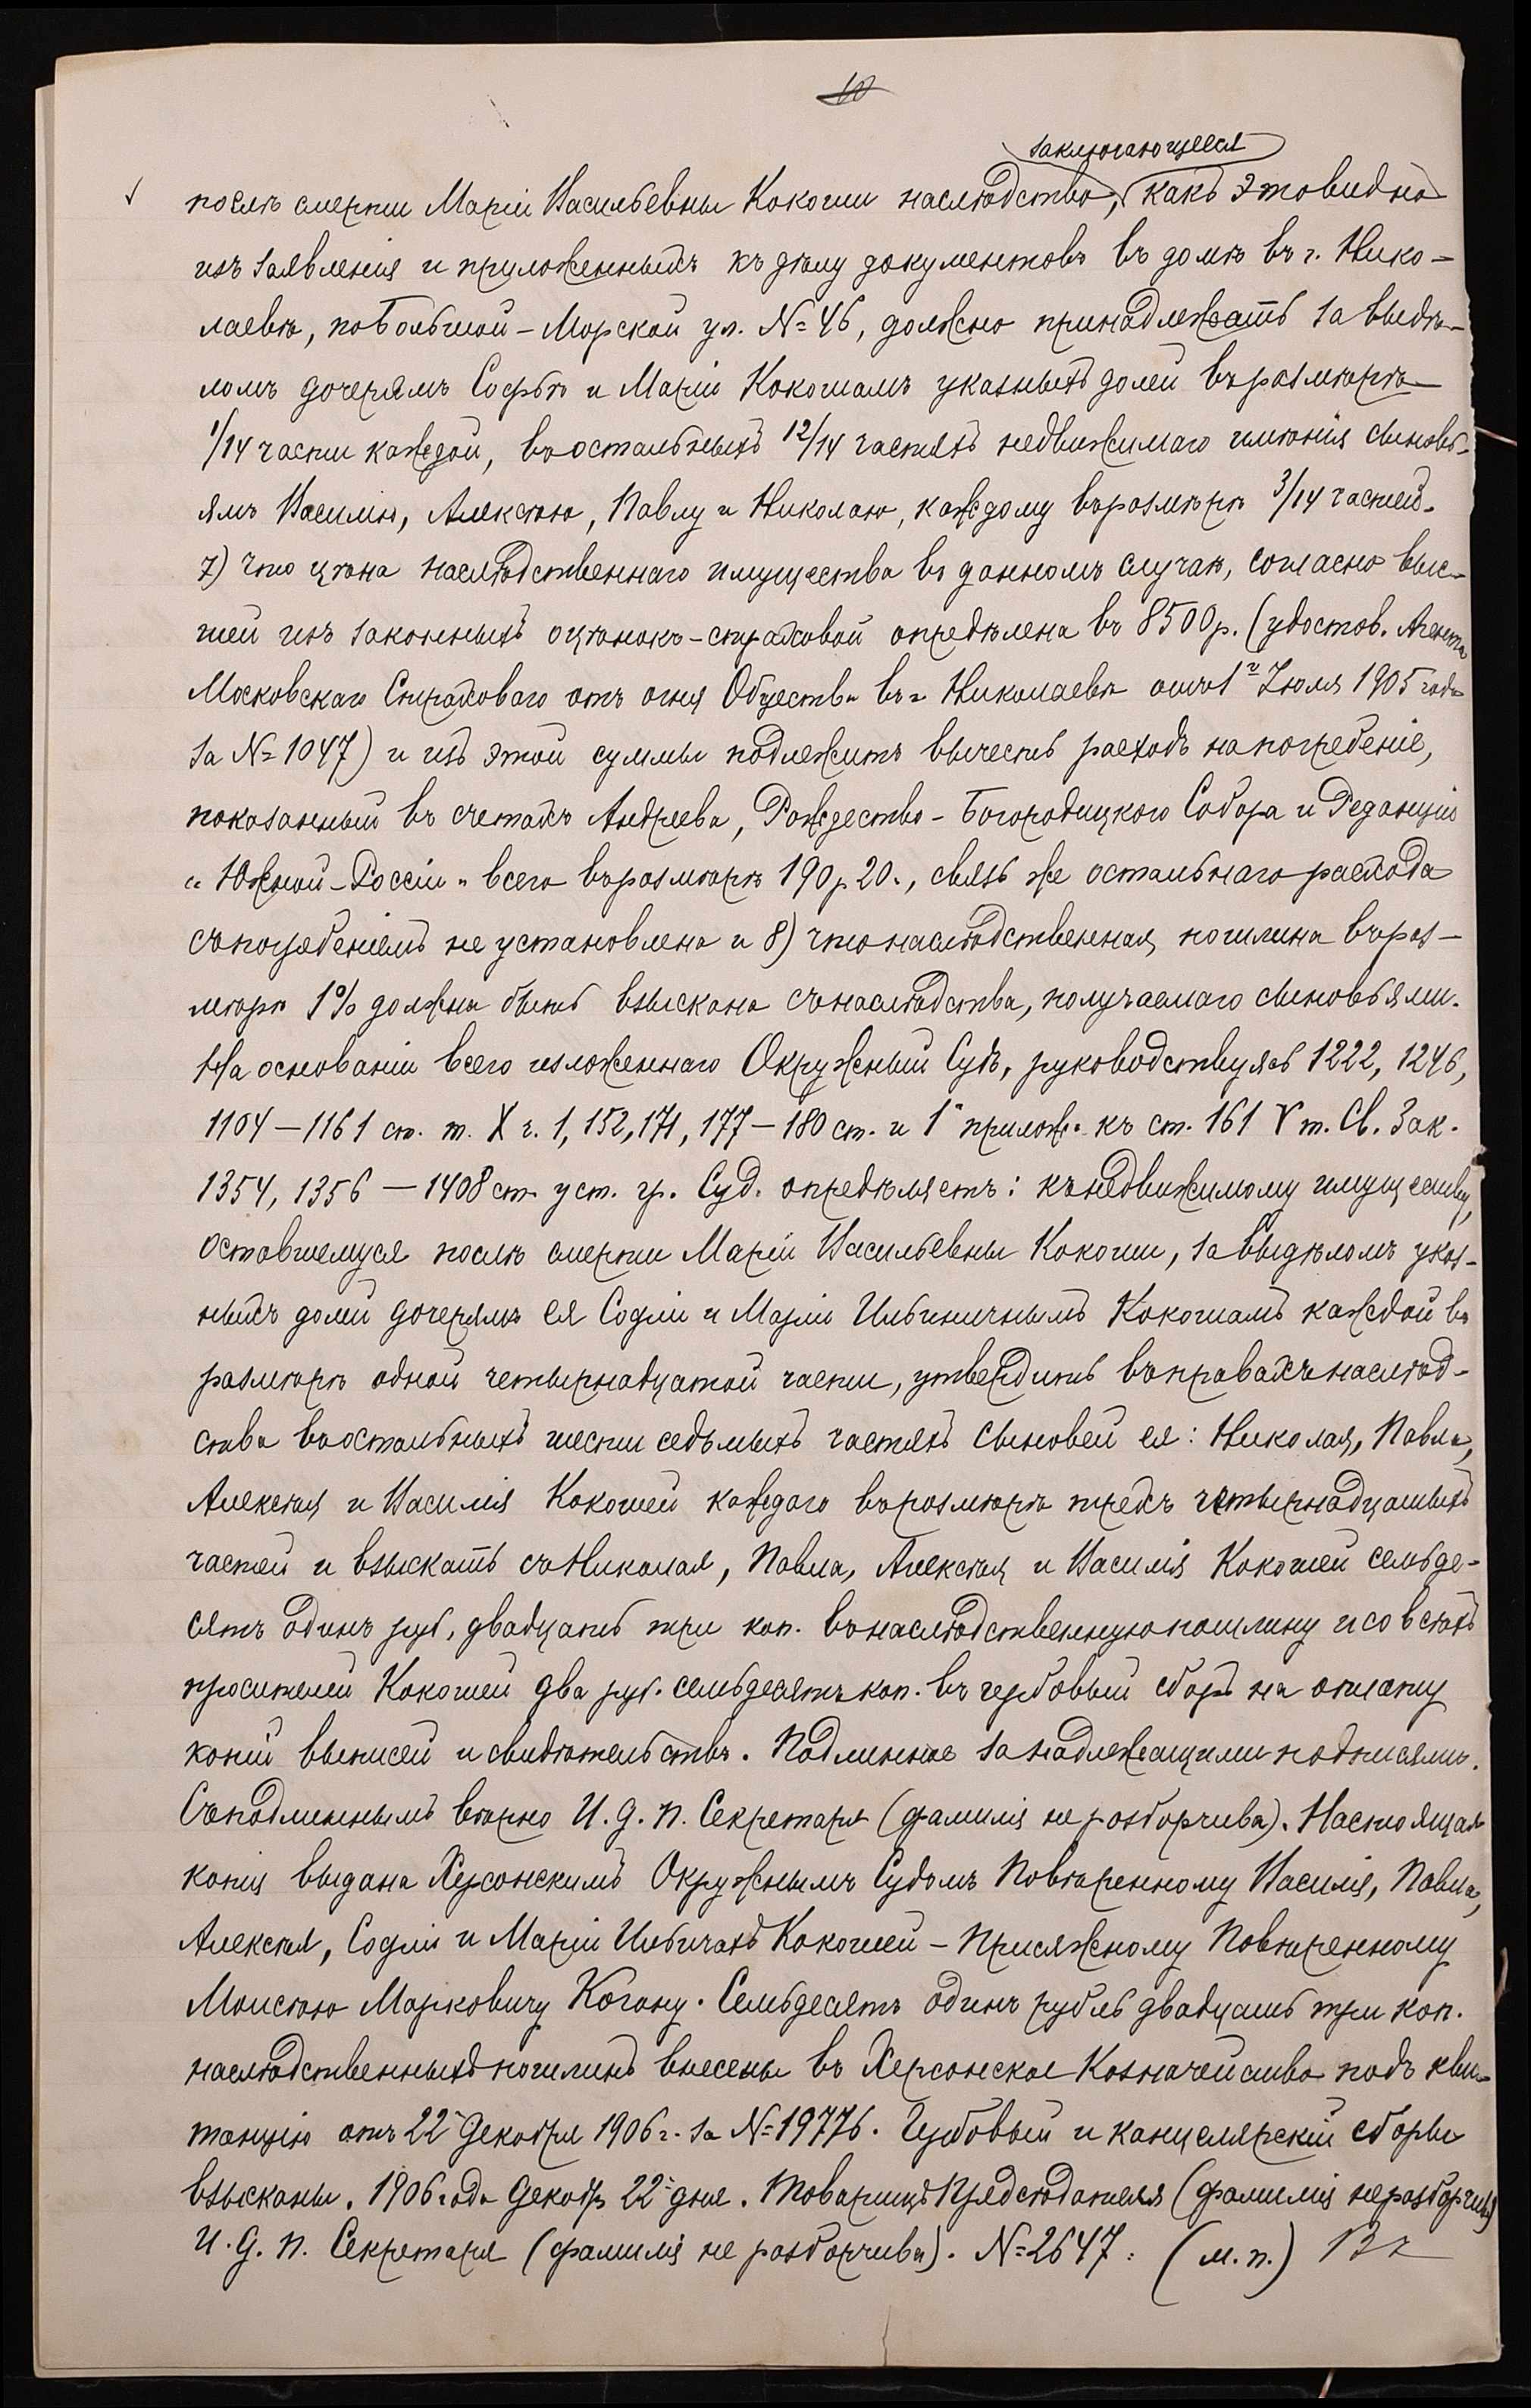 10
заключающееся
послѣ смерти Маріи Васильевны Кокоши наслѣдство, какъ это видно
изъ заявленія и приложенныхъ къ дѣлу документовъ въ домѣ въ г. Нико-
лаевѣ, по Большой-Морской ул. № 46, должно принадлежать за выдѣ-
ломъ дочерямъ Софьѣ и Маріи Кокошамъ указныхъ долей въ размѣрѣ
1/14 части каждой, въ остальныхъ 12/14 частяхъ недвижимаго имѣнія сыновь-
ямъ Василію, Алексѣю, Павлу и Николаю, каждому въ размѣрѣ 3/14 частей.
7) что цѣна наслѣдственнаго имущества въ данномъ случаѣ, согласно выс-
шей изъ законныхъ оцѣнокъ-страховой опредѣлена въ 8500 р. (удостов. Агента
Московскаго Страховаго отъ огня Общества въ г. Николаевѣ отъ 1го Іюля 1905 года
за № 1047) и изъ этой суммы подлежитъ вычесть расходъ на погребеніе,
показанный въ счетахъ Андреева, Рождество-Богородицкаго Собора и Редакціи
„Южной-Россіи" всего въ размѣрѣ 190 р 20., связь же остальнаго расхода
съ погребеніемъ не установлена и 8) что наслѣдственная пошлина въ раз-
мѣрѣ 1% должна быть взыскана съ наслѣдства, получаемаго сыновьями.
На основаніи всего изложеннаго Окружный Судъ, руководствуясь 1222, 1246,
1104-1161 ст. т. X ч. 1, 152, 171, 177-180 ст. и 1 прилож. къ ст. 161 V т. Св. Зак.
1354, 1356-1408 ст. уст. гр. Суд. опредѣляетъ: къ недвижимому имуществу,
оставшемуся послѣ смерти Маріи Васильевны Кокоши, за выдѣломъ указ-
ныхъ долей дочерямъ ея Софіи и Маріи Ильиничнымъ Кокошамъ каждой въ
размѣрѣ одной четырнадцатой части, утвердить въ правахъ наслѣд-
ства въ остальныхъ шести седьмыхъ частяхъ сыновей ея: Николая, Павла,
Алексѣя и Василія Кокошей каждаго въ размѣрѣ трехъ четырнадцатыхъ
частей и взыскать съ Николая, Павла, Алексѣя и Василія Кокошей семьде-
сятъ одинъ руб, двадцать три коп. въ наслѣдственную пошлину и со всѣхъ
просителей Кокошей два руб. семьдесятъ коп. въ гербовый сборъ на оплату
копій выписей и свидѣтельствъ. Подлинное за надлежащими подписями.
Съ подлиннымъ вѣрно И. д. п. Секретаря (фамилія не разборчива). Настоящая
копія выдана Херсонскимъ Окружнымъ Судомъ Повѣренному Василія, Павла,
Алексѣя, Софіи и Маріи Ильичахъ Кокошей - Присяжному Повѣренному
Моисѣю Марковичу Когану. Семьдесятъ одинъ рубль двадцать три коп.
наслѣдственныхъ пошлинъ внесены въ Херсонское Казначейство подъ кви-
танцію отъ 22 Декабря 1906 г. за № 19776. Гербовый и канцелярскій сборы
взысканы. 1906 года Декабря 22 дня. Товарищъ Предсѣдателя (фамилія не разборчива)
И. д. п. Секретаря (фамилія не разборчива). № 2647. (м. п.)